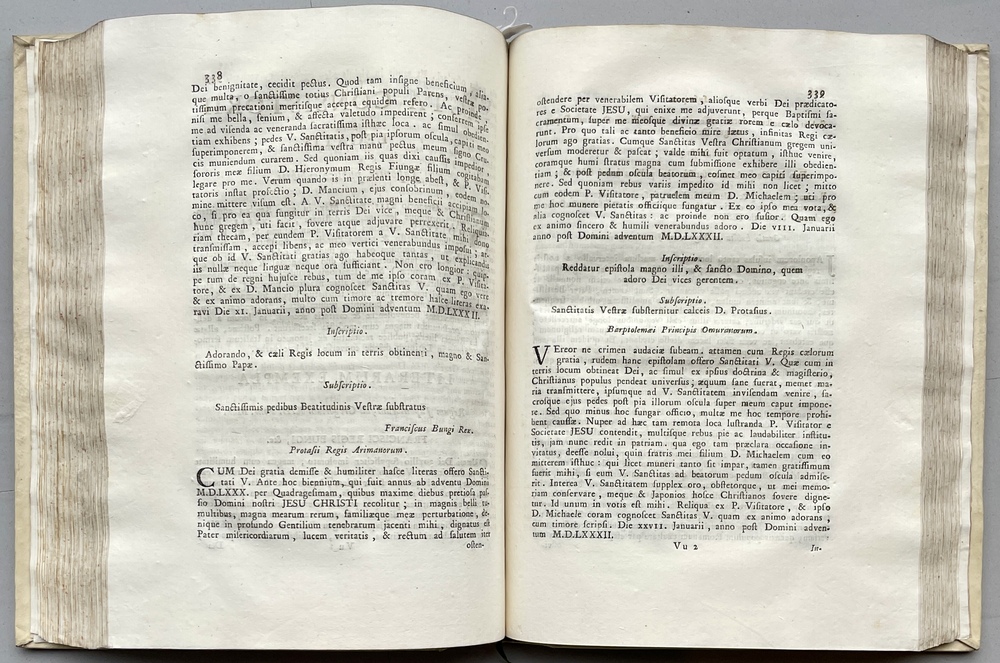 338
Dei benignitate, cecidit pectus. Quod tam insigne beneficium, alia-
que multa, o sanctissime totius Christiani populi Parens, vestræ po-
tissimum precationi meritisque accepta equidem refero. Ac proinde,
nisi me bella, senium, & affecta valetudo impedirent; conferrem ipse
me ad visenda ac veneranda sacratissima isthæc loca. ac simul obedien-
tiam exhibens; pedes V. Sanctitatis, post pia ipsorum oscula, capiti meo
superimponerem, & sanctissima vestra manu pectus meum signo Cru-
cis muniendum curarem. Sed quoniam iis quas dixi caussis impedior,
sororis meæ filium D. Hieronymum Regis Fiungæ filium cogitabam
legare pro me. Verum quando is in præsenti longe abest, & P. Visi-
tatoris instat profectio; D. Mancium, ejus consobrinum, eodem no-
mine mittere visum est. A V. Sanctitate magni beneficii accipiam lo-
co, si pro ea qua fungitur in terris Dei vice, meque & Christianum
hunc gregem, uti facit, fovere atque adjuvare perrexerit. Reliquia-
riam thecam, per eundem P. Visitatorem a V. Sanctitate mihi dono
transmissam, accepi libens, ac meo vertici venerabundus imposui; at-
que ob id V. Sanctitati gratias ago habeoque tantas, ut explicandis
iis nullæ neque linguæ neque ora sufficiant. Non ero longior; quip-
pe tum de regni hujusce rebus, tum de me ipso coram ex P. Visita-
tore, & ex D. Mancio plura cognoscet Sanctitas V. quam ego vere
& ex animo adorans, multo cum timore ac tremore hasce literas exa-
ravi Die XI. Januarii, anno post Domini adventum M.D.LXXXII.
Inscriptio.
Adorando, & cæli Regis locum in terris obtinenti, magno & San-
ctissimo Papæ.
Subscriptio.
Sanctissimis pedibus Beatitudinis Vestræ substratus
Franciscus Bungi Rex.
Protasii Regis Arimanorum.
CUM Dei gratia demisse & humiliter hasce literas offero Sancti-
tati V. Ante hoc biennium, qui fuit annus ab adventu Domini
M.D.LXXX. per Quadragesimam, quibus maxime diebus pretiosa pas-
sio Domini nostri JESU CHRISTI recolitur; in magnis belli tu-
multibus, magna mearum rerum, familiæque meæ perturbatione, de-
nique in profundo Gentilium tenebratum jacenti mihi, dignatus est
Pater misericordiarum, lucem veritatis, & rectum ad salutem iter
osten-
339
ostendere per venerabilem Visitatorem, aliosque verbi Dei prædicato-
res e Societate JESU, qui enixe me adjuverunt, perque Baptismi sa-
cramentum, super me meosque divinæ gratiæ rorem e cælo devoca-
runt. Pro quo tali ac tanto beneficio mire lætus, infinitas Regi cæ-
lorum ago gratias. Cumque Sanctitas Vestra Christianum gregem uni-
versum moderetur & pascat; valde mihi fuit optatum, isthuc venire,
coramque humi stratus magna cum submissione exhibere illi obedien-
tiam; & post pedum oscula beatorum, eosmet meo capiti superimpo-
nere. Sed quoniam rebus variis impedito id mihi non licet; mitto
cum eodem P. Visitatore, patruelem meum D. Michaelem; uti pro
me hoc munere pietatis officiique fungatur. Ex eo ipso mea vota, &
alia cognoscet V. Sanctitas: ac proinde non ero fusior. Quam ego
ex animo sincero & humili venerabundus adoro. Die VIII. Januarii
anno post Domini adventum M.D.LXXXII.
Inscriptio.
Reddatur epistola magno illi, & sancto Domino, quem
adoro Dei vices gerentem.
Subscriptio.
Sanctitatis Vestræ substernitur calceis D. Protasius.
Barptolemæi Principis Omuranorum.
VEreor ne crimen audaciæ subeam. attamen cum Regis cælorum
gratia, rudem hanc epistolam offero Sanctitati V. Quæ cum in
terris locum obtineat Dei, ac simul ex ipsius doctrina & magisterio,
Christianus populus pendeat universus; æquum sane fuerat, memet ma-
ria transmittere, ipsumque ad V. Sanctitatem invisendam venire, sa-
crosque ejus pedes post pia illorum oscula super meum caput impone-
re. Sed quo minus hoc fungar officio, multæ me hoc tempore prohi-
bent caussæ. Nuper ad hæc tam remota loca lustranda P. Visitator e
Societate JESU contendit, multisque rebus pie ac laudabiliter institu-
tis, jam nunc redit in patriam. qua ego tam præclara occasione in-
vitatus, deesse nolui, quin fratris mei filium D. Michaelem cum eo
mitterem isthuc: qui licet muneri tanto sit impar, tamen gratissimum
fuerit mihi, si eum V. Sanctitas ad beatorum pedum oscula admise-
rit. Interea V. Sanctitatem supplex oro, obstetorque, ut mei memo-
riam conservare, meque & Japonios hosce Christianos fovere digne-
tur. Id unum in votis est mihi. Reliqua ex P. Visitatore, & ipso
D. Michaele coram cognoscet Sanctitas V. quam ex animo adorans,
cum timore scripsi. Die XXVII. Januarii, anno post Domini adven-
tum M.D.LXXXII.
Vu 2
In-